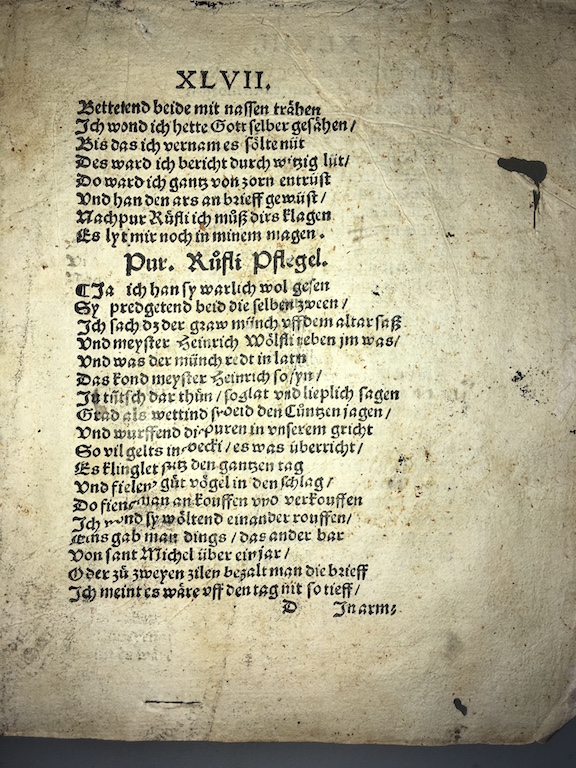 XLVII.
Bettelend beide mit nassen trähen
Ich wond ich hette Gott selber gesähen /
Bis das ich vernam es sölte nüt
Des ward ich bericht durch witzig lüt /
Do ward ich gantz von zorn entrüst
Vnd han den ars an brieff gewüst /
Nachpur Růfli ich můß dirs klagen
Es lyt mir noch in minem magen.
Pur. Růfli Pflegel.
CJa ich han sy warlich wol gesen
Sy predgetend beid die selben zween /
Ich sach dz der graw münch vff dem altar saß
Vnd meyster Heinrich Wölfli neben jm was /
Vnd was der münch redt in latin
Das kond meyster Heinrich so fyn /
In tütsch dar thůn / so glat vnd lieplich sagen
Grad als wettind sy beid den Cüntzen jagen /
Vnd wurffend die puren in vnserem gricht
So vil gelts in / es was überricht /
Es klinglet den gantzen tag
Vnd fielend gůt vögel in den schlag /
Do fieng man an kouffen vnd verkouffen
Ich wond sy wöltend einander rouffen /
Eins gab man dings / das ander bar
Von sant Michel über ein jar /
Oder zů zweyen zilen bezalt man die brieff
Ich meint es wäre vff den tag nit so tieff /
D In arm⸗